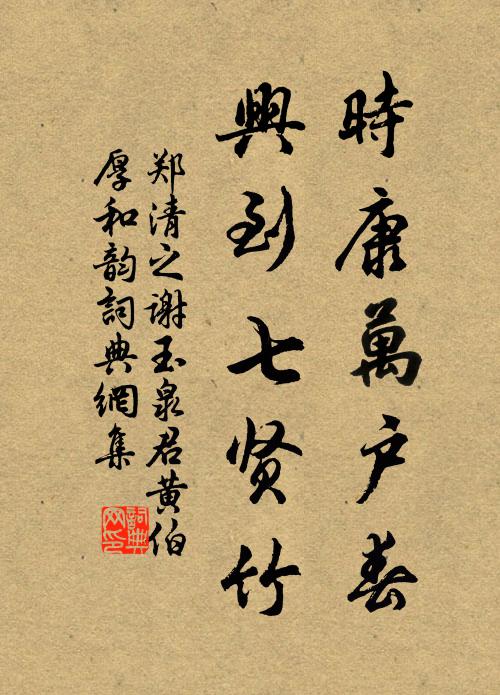 時康萬户春
興到七贤竹
郑清之谢玉泉君黄伯
厚和韵詞典網集
詞典網印